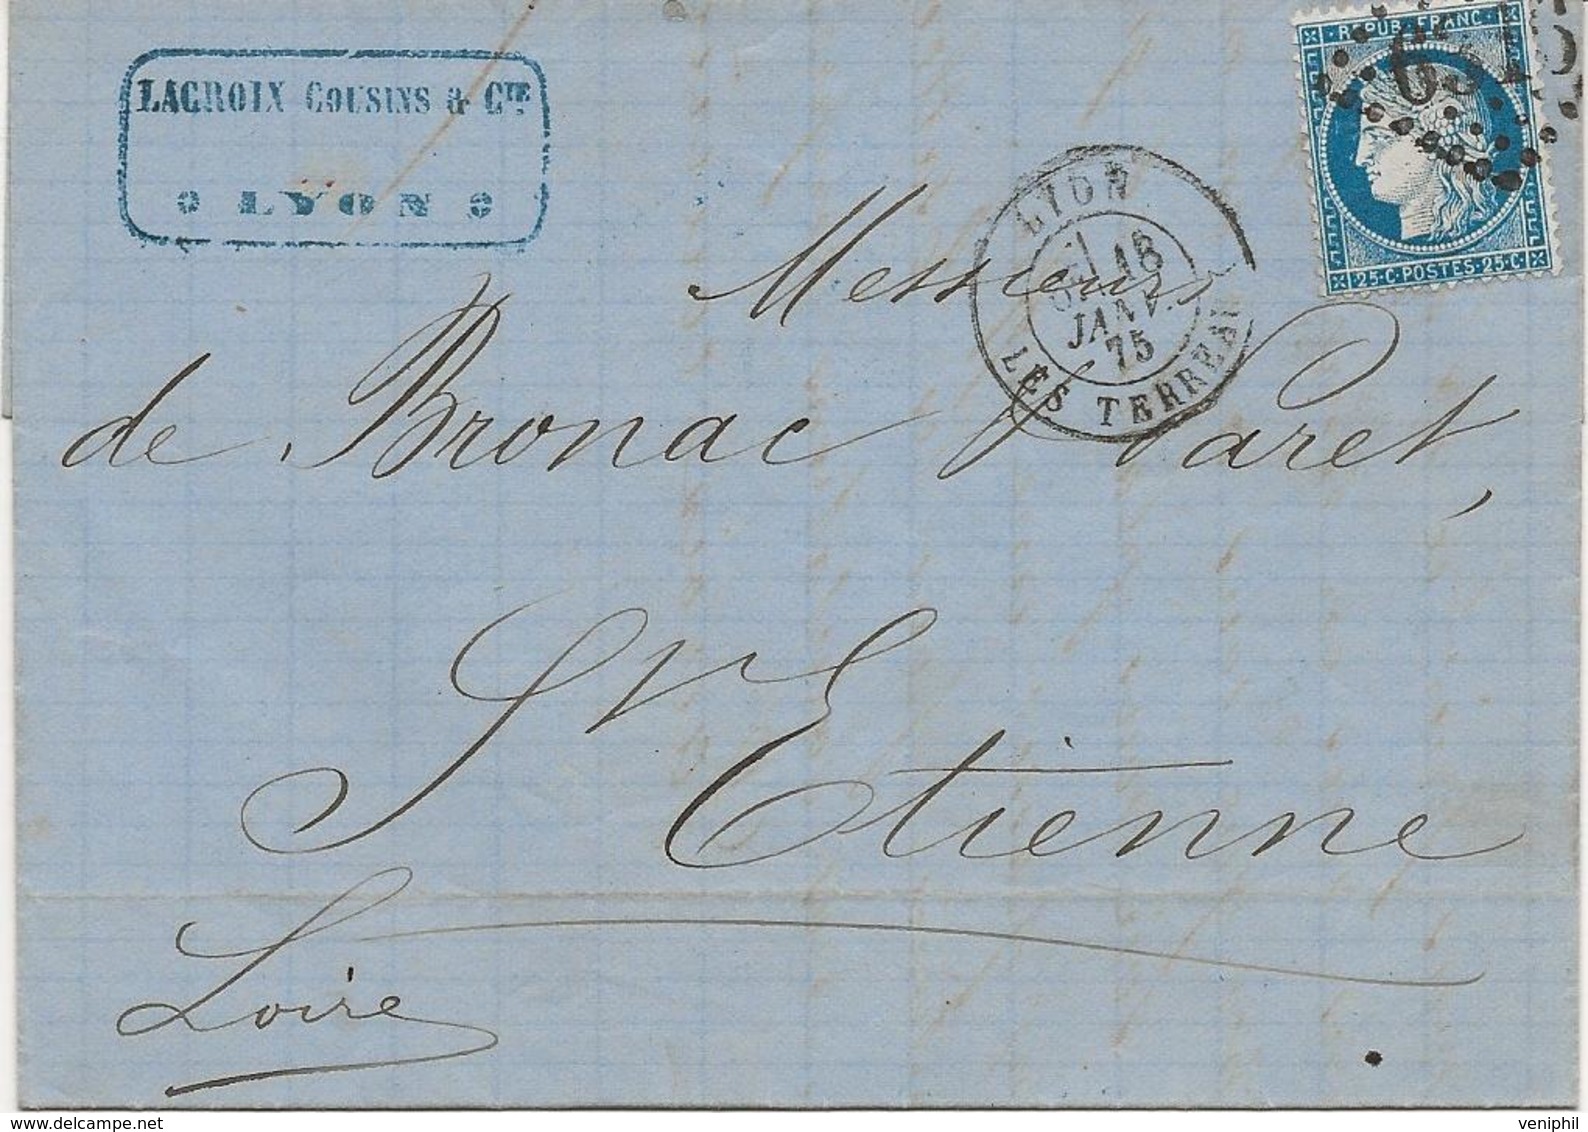 LACROIX COUSINS & CIE
LYON
REPUB. FRANC.
25·C·POSTES·25·C
LYON
16
JANV.
75
LES TERREAU
Messieurs
de Bronac & Paret,
St Etienne
Loire
veniphil